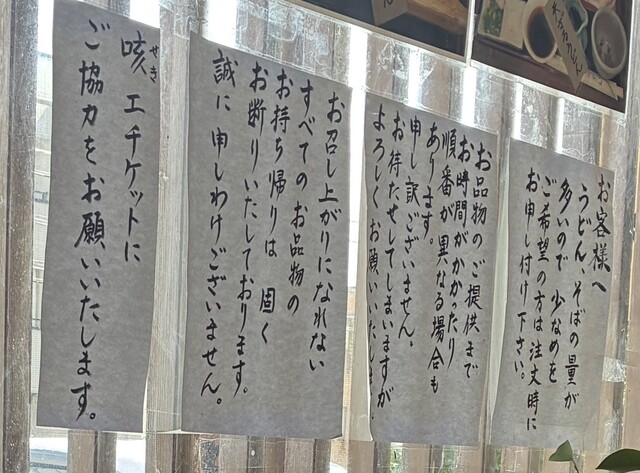 お客様へ
うどん、そばの量が
多いので 少なめを
ご希望の方は注文時に
お申し付け下さい。
お品物のご提供まで
お時間がかかったり
順番が異なる場合も
あります。
申し訳ございません。
お待たせしてしまいますが
よろしくお願いいたします
お召し上がりになれない
すべての お品物の
お持ち帰りは 固く
お断りいたしております。
誠に 申しわけございません。
咳 エチケットに
せき
ご協力をお願いいたします。